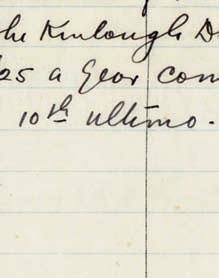 the Kinlough D
25 a year com
10th ultimo.